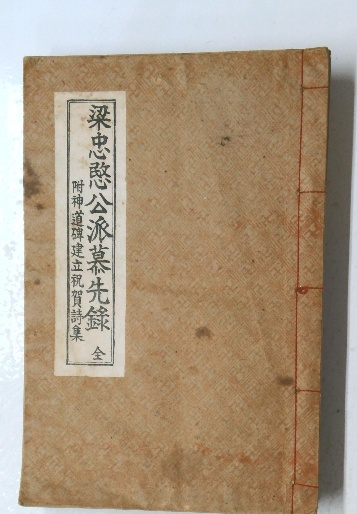 梁忠愍公派慕先錄 全
附神道碑建立祝賀詩集